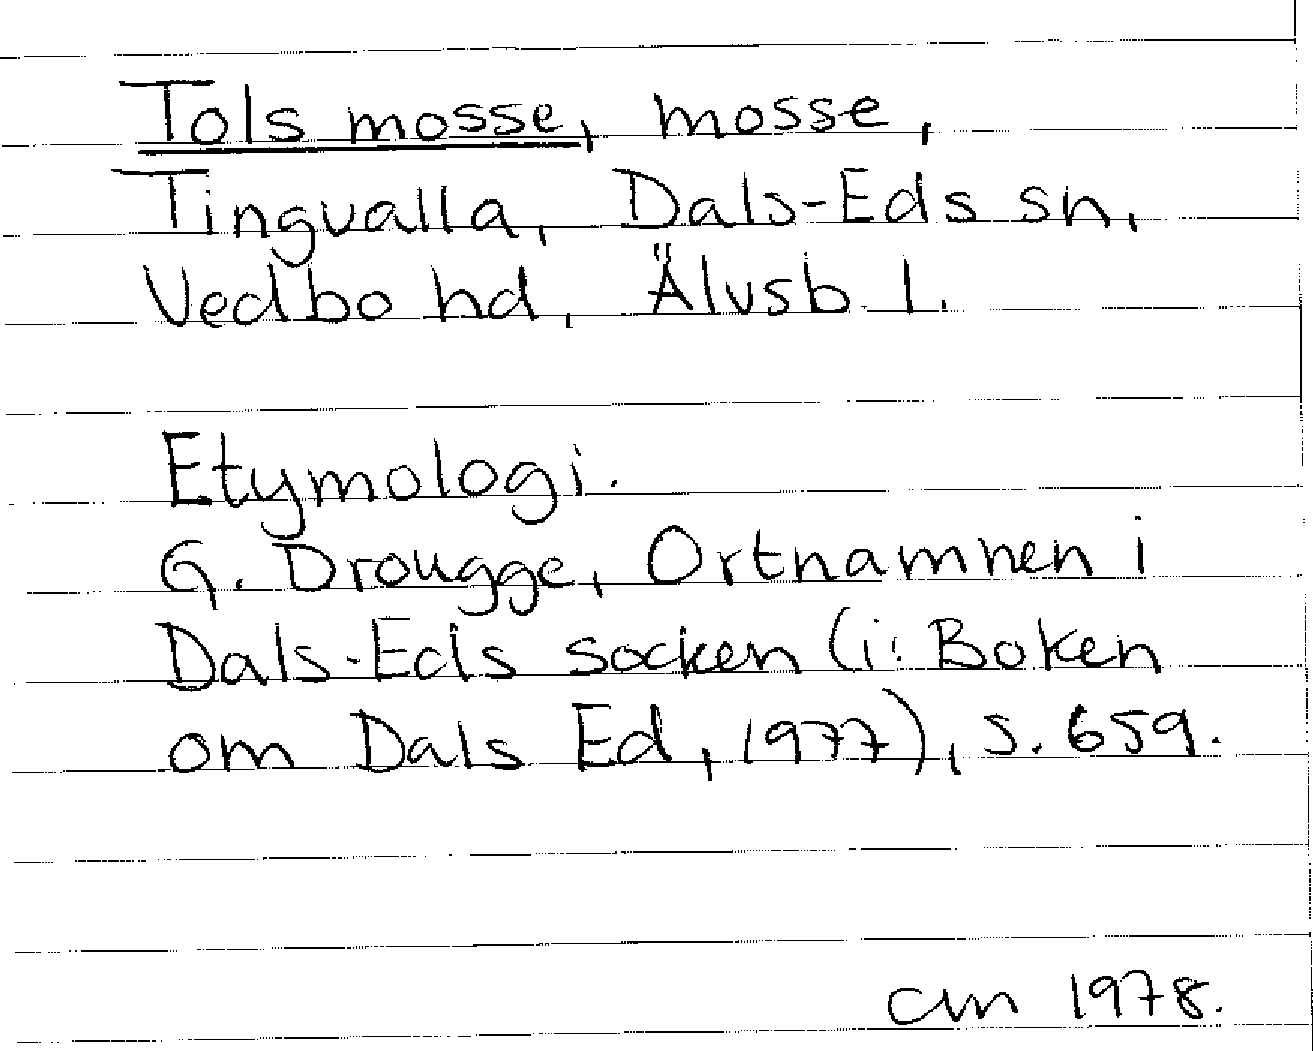 Tols mosse, mosse,
Tingvalla, Dals-Eds sn,
Vedbo hd, Älvsb l.
Etymologi.
G. Drougge, Ortnamnen i
Dals-Eds socken (i: Boken
om Dals Ed, 1977), s. 659.
cm 1978.